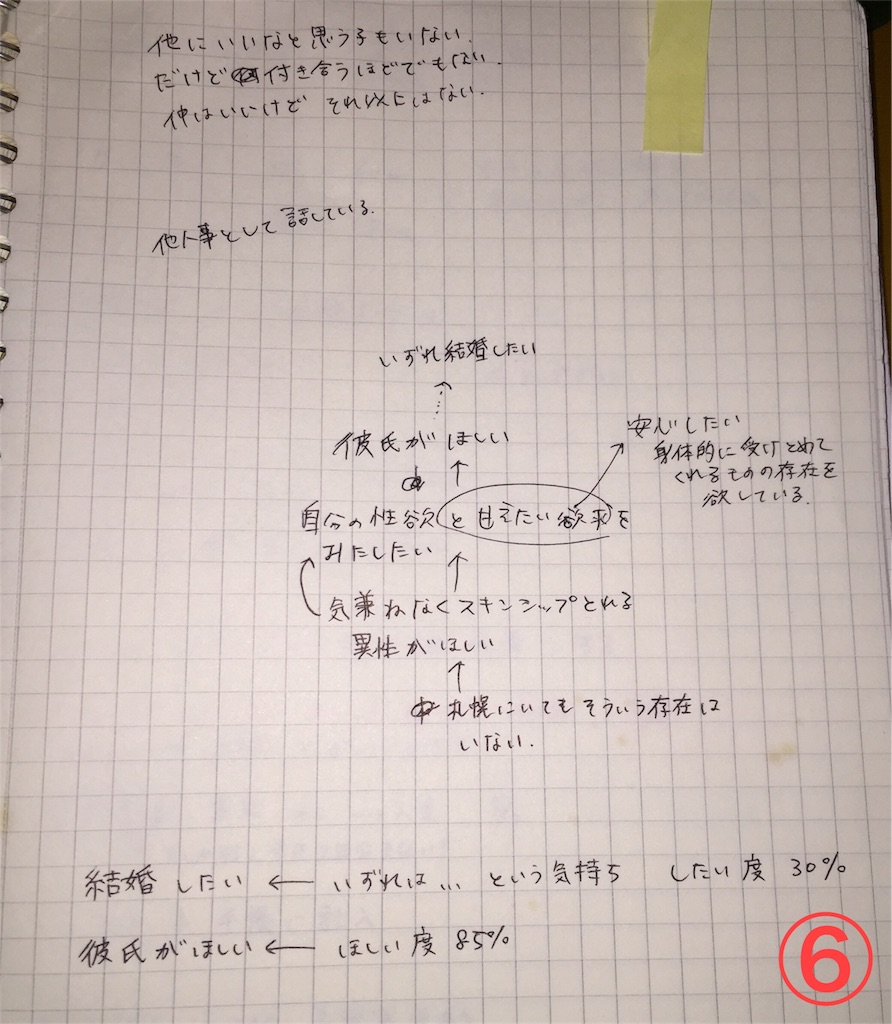 他にいいなと思う子もいない.
だけど付き合うほどでもない.
仲はいいけど それ以上はない.
他人事として話している.
いずれ結婚したい
彼氏が ほしい
自分の性欲と甘えたい欲求を
みたしたい
安心したい
身体的に受けとめて
くれるものの存在を
欲している.
気兼ねなくスキンシップとれる
異性がほしい
札幌にいてもそういう存在は
いない.
結婚 したい ← いずれは... という気持ち したい度 30%
彼氏がほしい ← ほしい度 85%
⑥